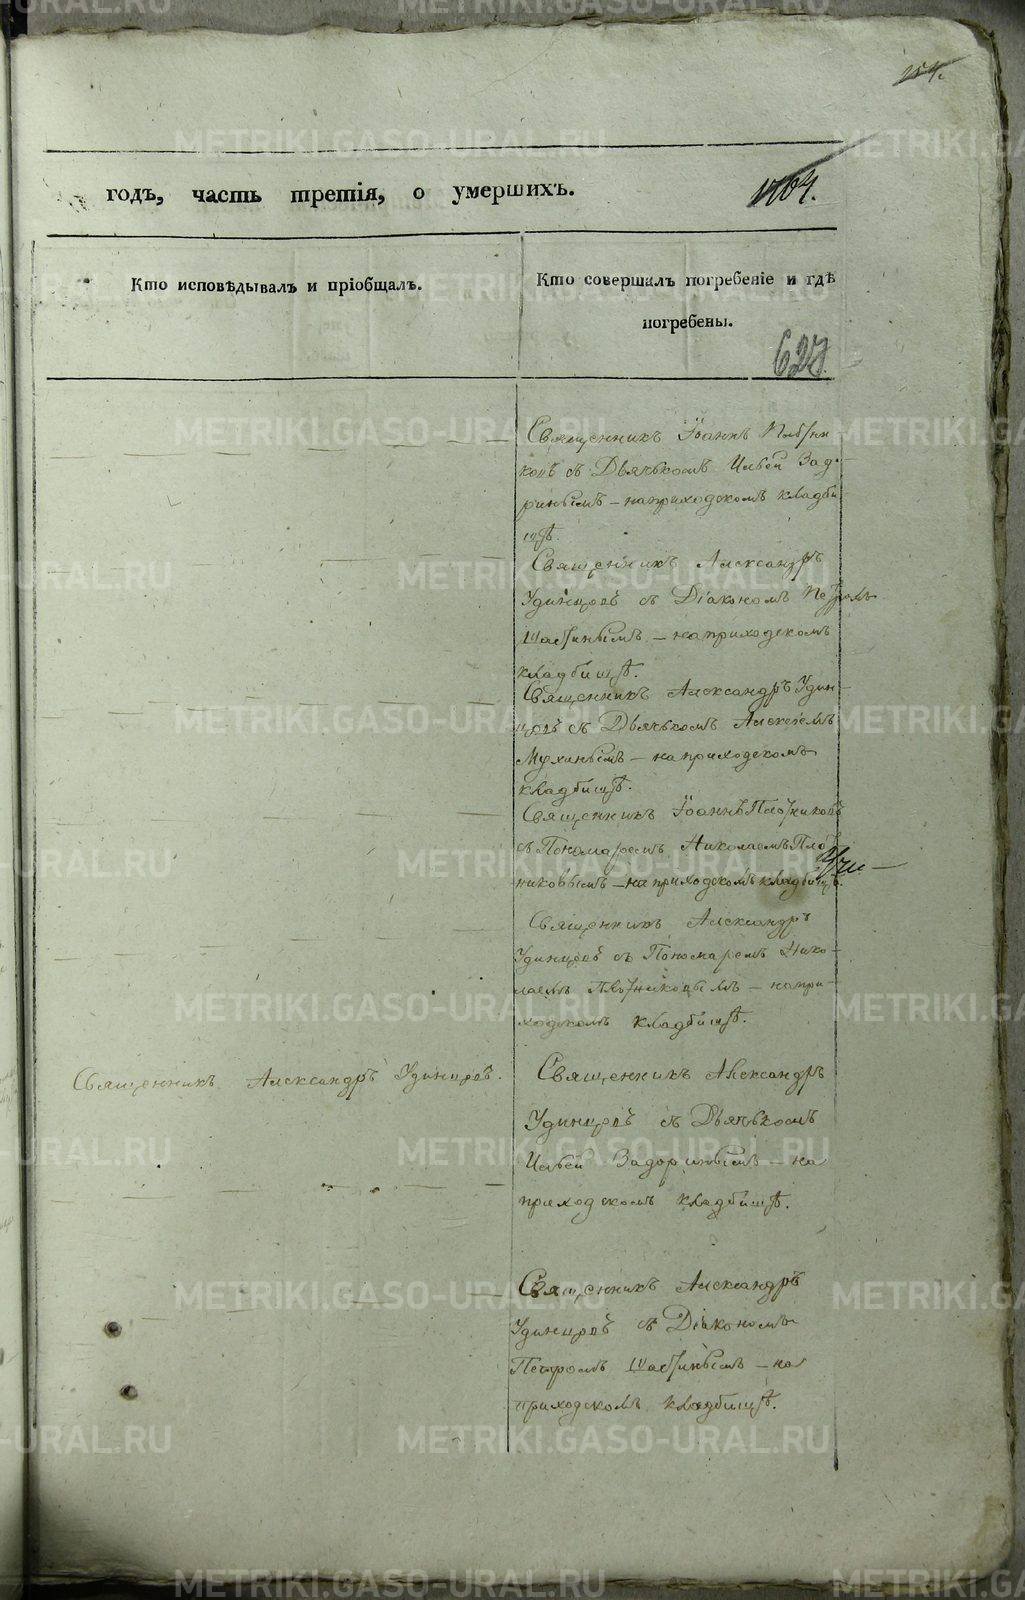 254.
годъ, часть третія, о умершихъ.
1704.
Кто исповѣдывалъ и пріобщалъ.
Кто совершалъ погребеніе и гдѣ
погребены.
627
Священникъ Іоаннъ Плотни
ковъ съ Дьячькомъ Ильей Задо
ринымъ – на приходскомъ кладби
щѣ.
Священникъ Александръ
Удинцовъ съ Діакономъ Петромъ
– на приходскомъ
кладбищѣ.
Священникъ Александръ Удин-
цовъ съ Дьячькомъ Алексіемъ
Мухинымъ – на приходскомъ
кладбищѣ.
Священникъ Іоаннъ Плотниковъ
съ Пономаремъ Николаемъ Плот
никовымъ – на приходскомъ кладбищѣ.
Священникъ Александръ
Удинцовъ съ Пономаремъ Нико-
лаемъ Плотниковымъ – на при-
ходскомъ кладбищѣ.
Священникъ Александръ Удинцовъ.
Священникъ Александръ
Удинцовъ съ Дьячькомъ
Ильей Задоринымъ – на
приходскомъ кладбищѣ.
Священникъ Александръ
Удинцовъ съ Діакономъ
Петромъ – на
приходскомъ кладбищѣ.
METRIKI.GASO-URAL.RU